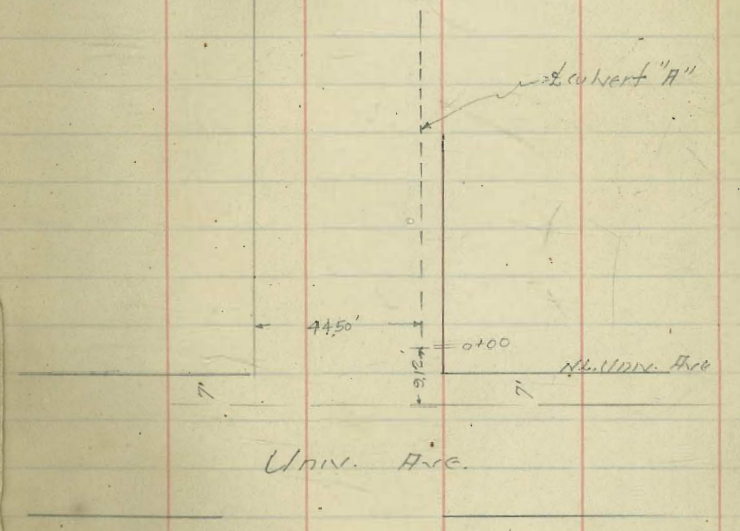 ℄ culvert "A"
44.50'
0+00
N.L. Univ. Ave
7'
7'
Univ. Ave.